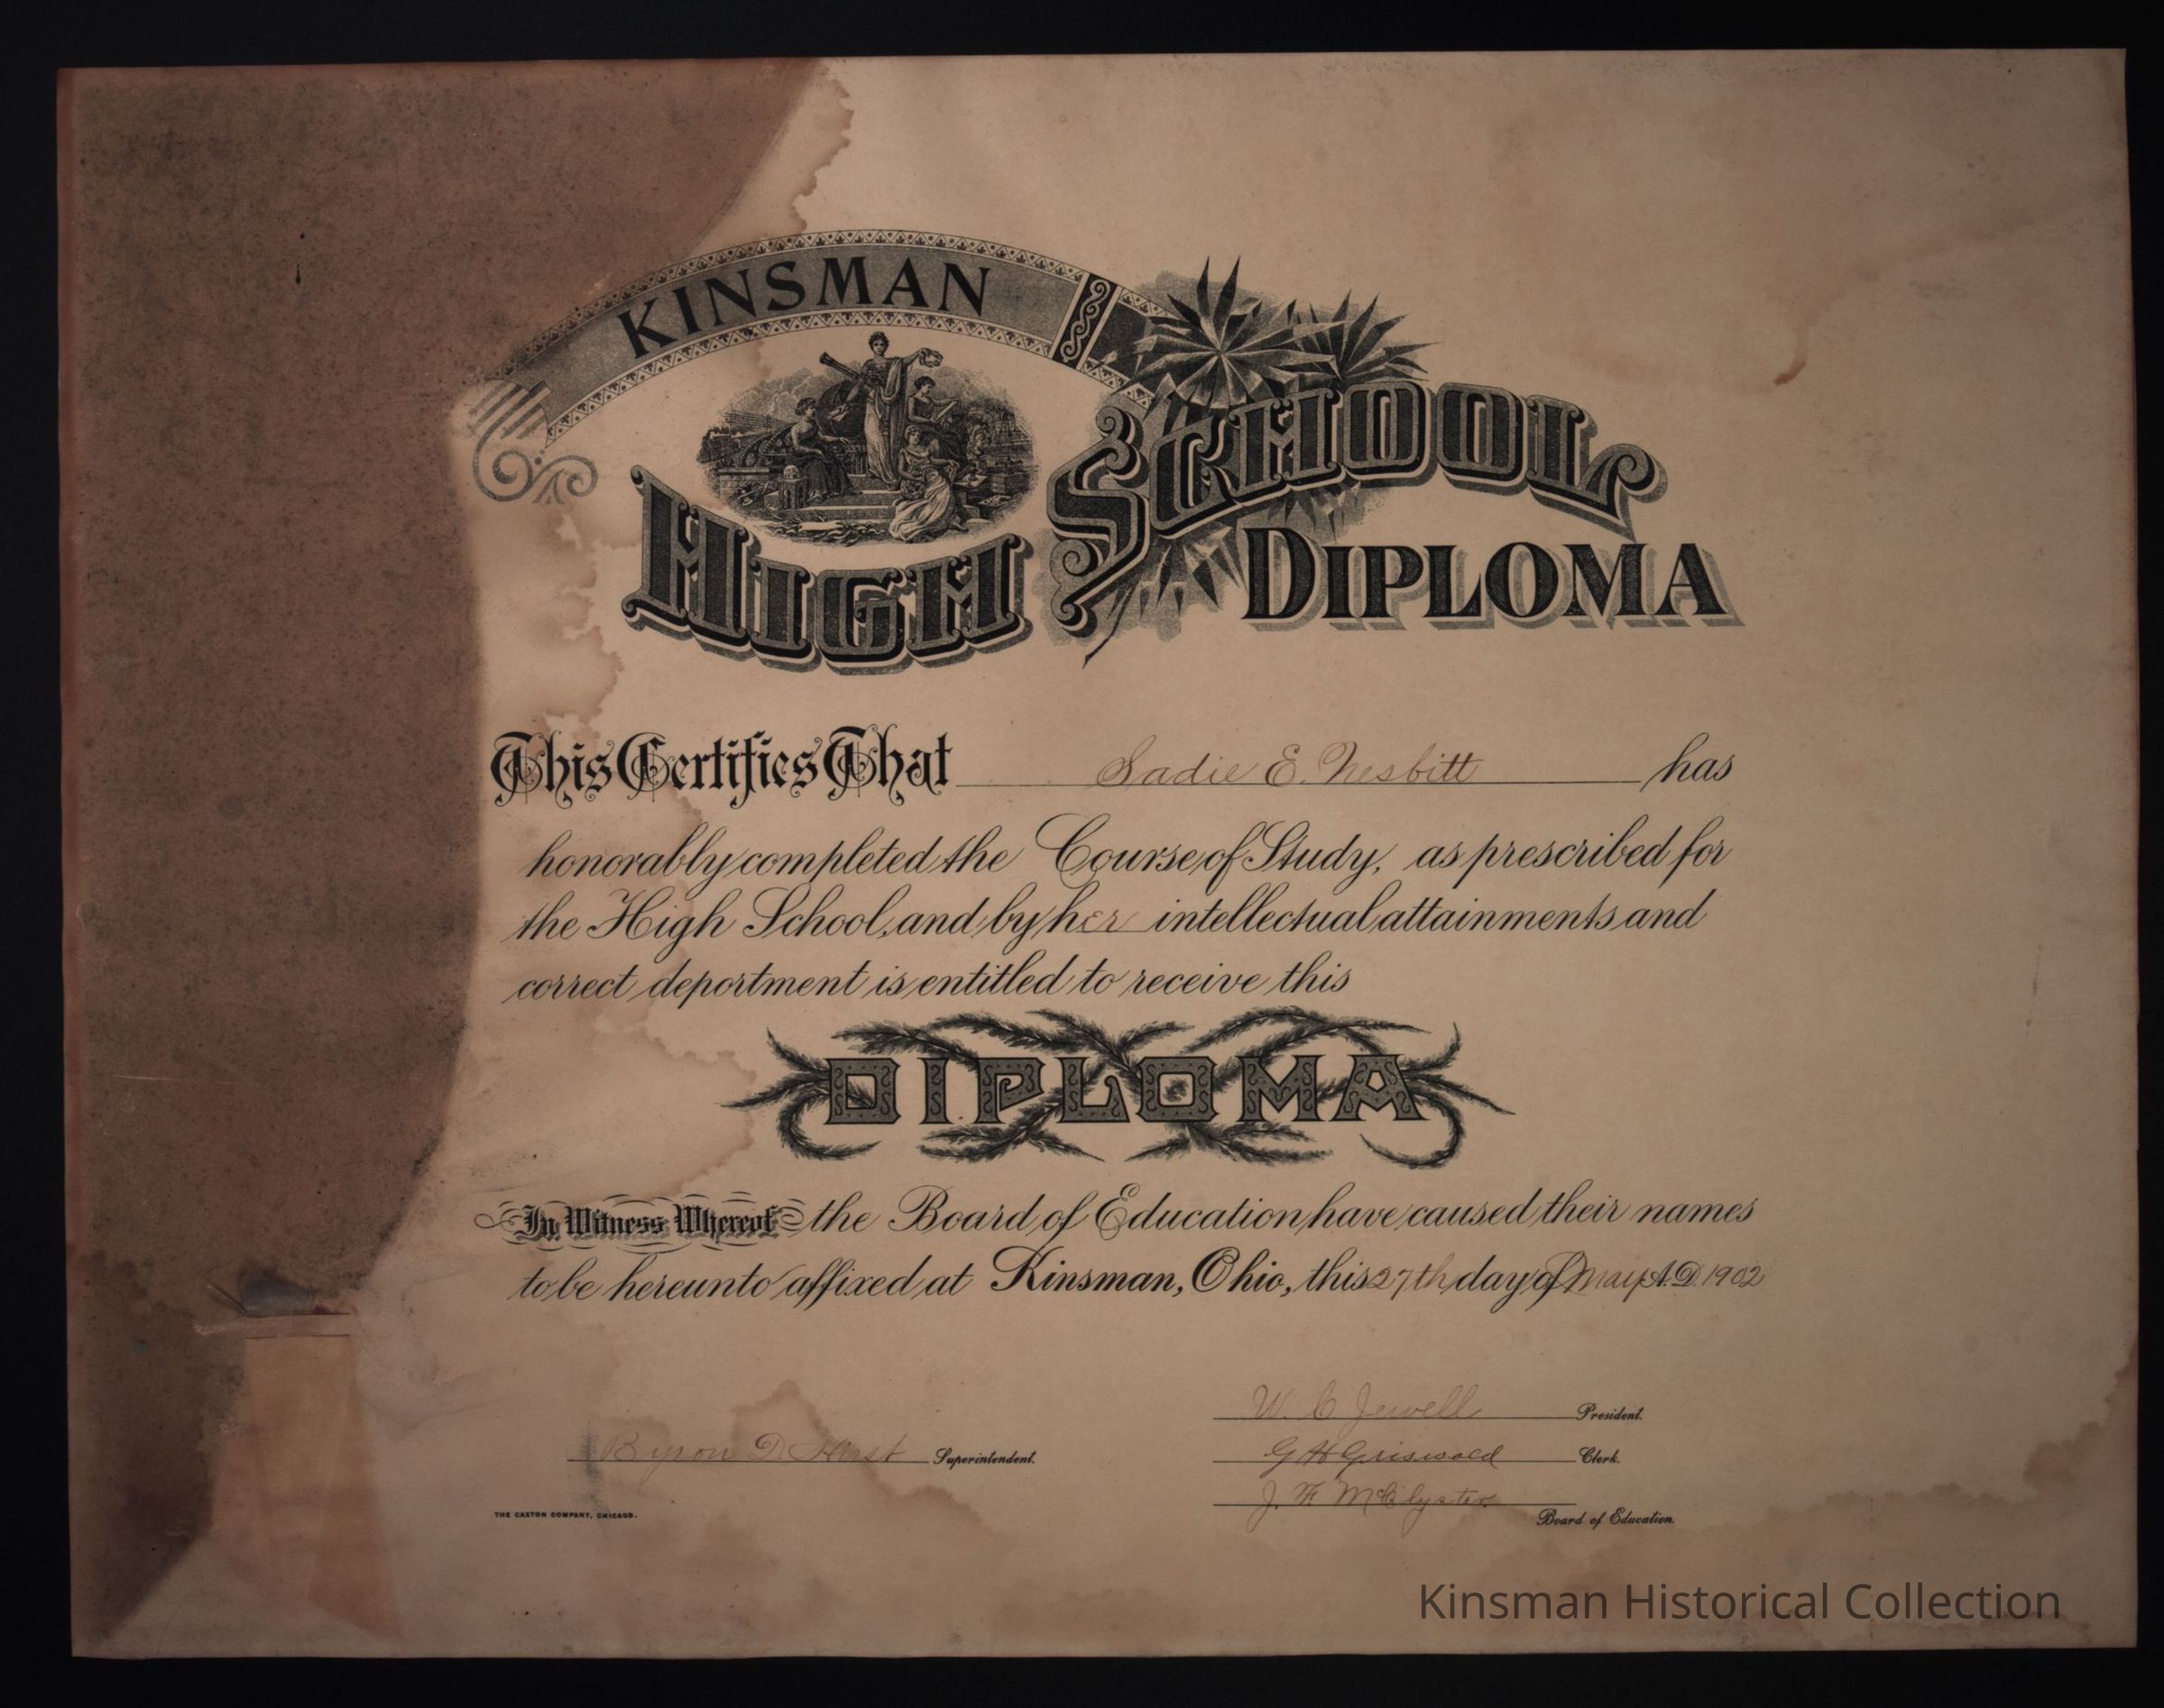 KINSMAN
HIGH SCHOOL
DIPLOMA
This Certifies That Sadie E. Nesbitt has
honorably completed the Course of Study, as prescribed for
the High School, and by her intellectual attainments and
correct deportment is entitled to receive this
DIPLOMA
In Witness Whereof the Board of Education have caused their names
to be hereunto affixed at Kinsman, Ohio, this 27th day of May A.D. 1902
W. C. Jewell President.
Byron D. Superintendent.
G H Griswold Clerk.
J. F.
Board of Education.
THE CAXTON COMPANY, CHICAGO.
Kinsman Historical Collection